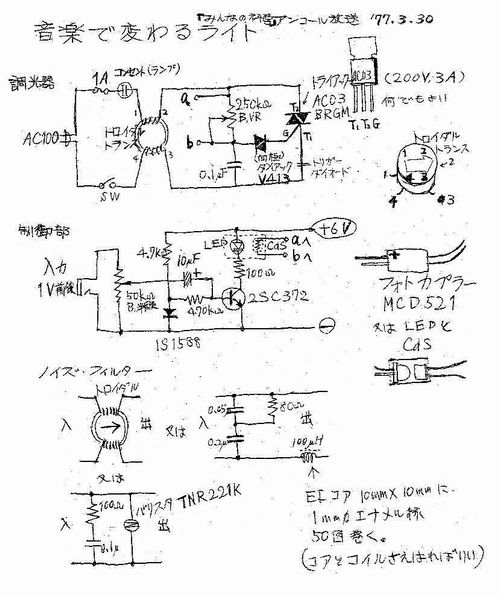 『みんなの科学』アンコール放送 '77.3.30
音楽で変わるライト
調光器
1A コンセント(ランプ)
AC100
SW
トロイダル
トランス
1 2
4 3
a
b
250kΩ
B.VR
0.1μF
(両極)
ダイアック
V413
トライアック
AC03
BRGM
T2
G T1
トリガー
ダイオード
AC03
(200V.3A)
何でもよい
T1 T2 G
トロイダル
トランス
1 2
4 3
制御部
入力
1V前後
50kΩ
4.7k
10μF
470kΩ
1S1588
LED
CdS
100Ω
2SC372
aへ
bへ
+6V
⊖
+
フォトカプラー
MCD521
又は LEDと
CdS
ノイズ・フィルター
トロイダル
入 出
又は
入
0.05
0.2μ
80Ω
出
100μH
又は
入
100Ω
0.1μ
バリスタ TNR221K
出
EIコア 10mm×10mmに
1mmのエナメル線
50回巻く。
(コアとコイルさえはればいい)